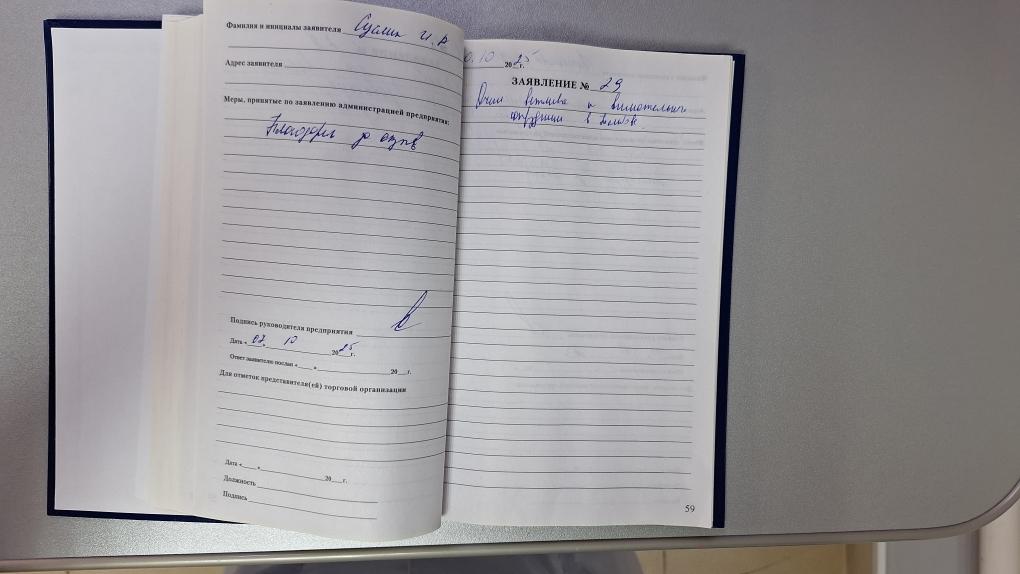 Фамилия и инициалы заявителя Суслик И.Р
Адрес заявителя
Меры, принятые по заявлению администрацией предприятия:
Благодарю за отзыв
Подпись руководителя предприятия
Дата « 02 » 10 20 25 г.
Ответ заявителю послан « » 20 г.
Для отметок представителя(ей) торговой организации
Дата « » 20 г.
Должность
Подпись
0.10 20 25 г.
ЗАЯВЛЕНИЕ № 29
и внимательные
сотрудники в
59